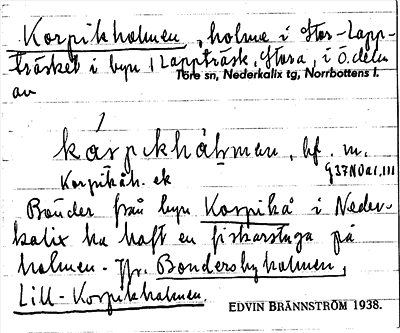 Korpikholmen, holme i Stor-Lapp-
träsket i byn 1 Lappträsk, Stora, i Ö. delen
Töre sn, Nederkalix tg, Norrbottens l.
av
kárpɩkhåḷmen, bf. m.
Korpikåh. ek
Bönder från byn Korpikå i Neder-
kalix ha haft en fiskarstuga på
holmen. Jfr. Bondersbyholmen,
Lill-Korpikholmen.
EDVIN BRÄNNSTRÖM 1938.